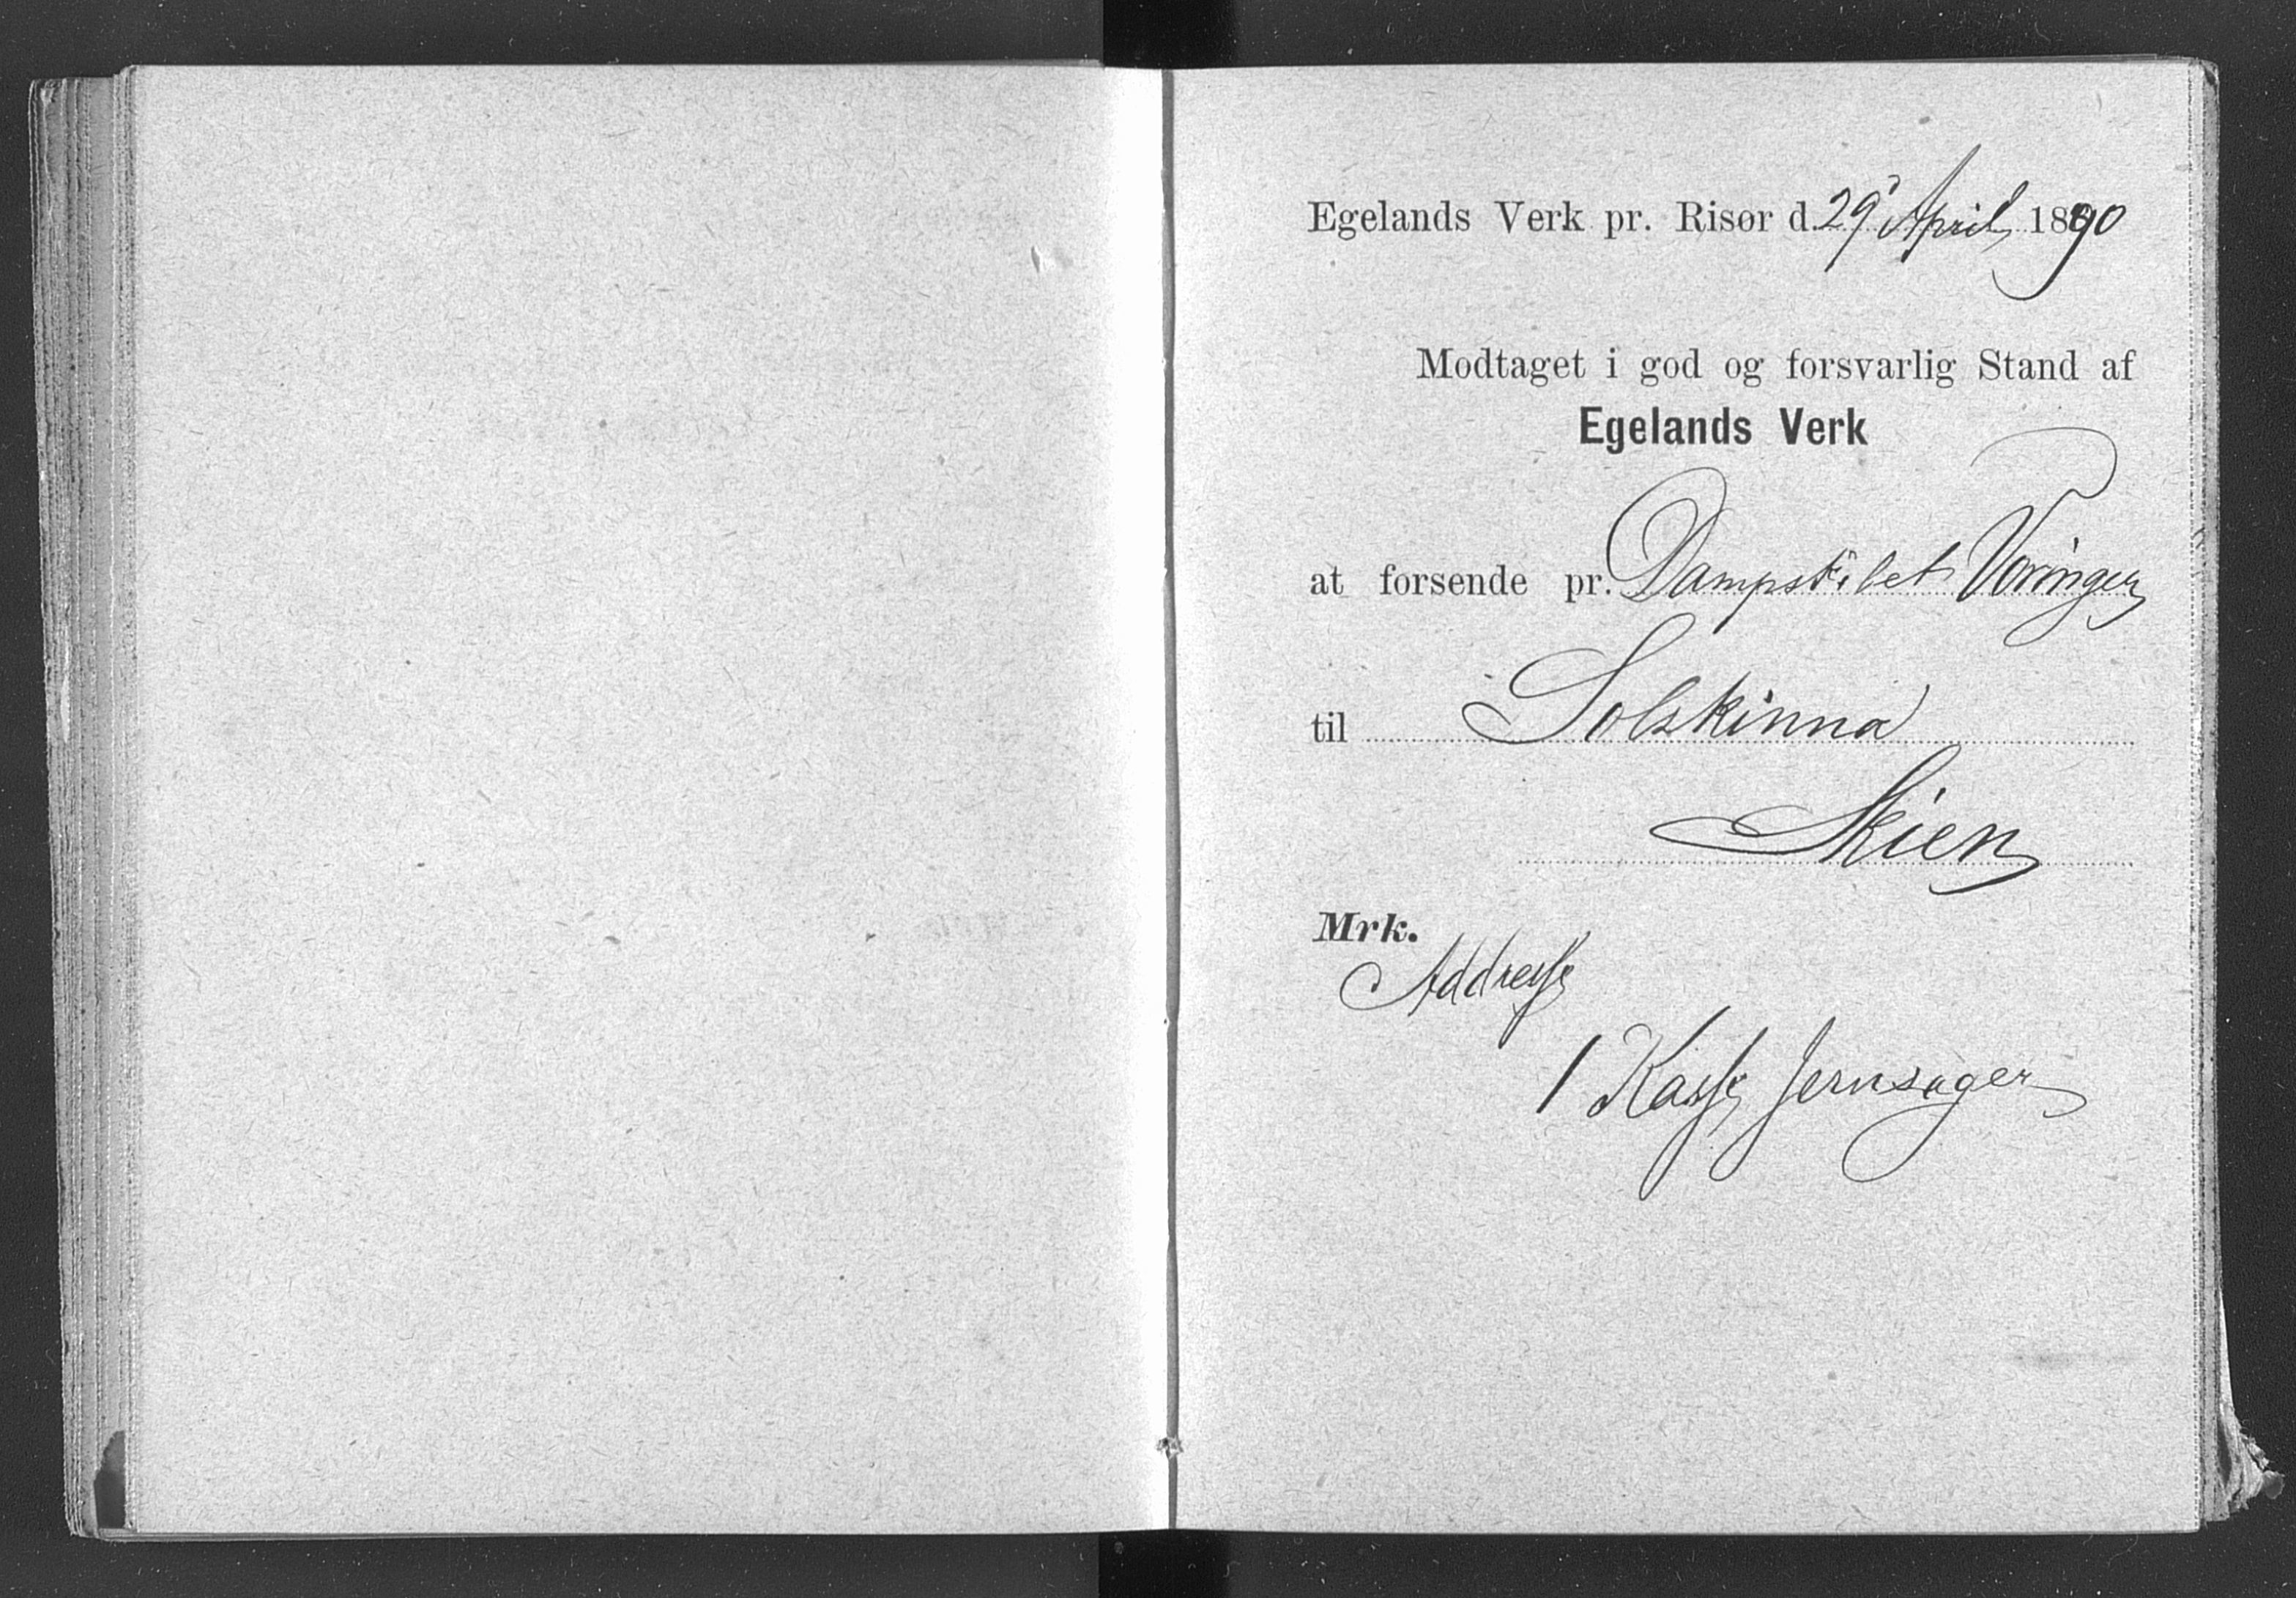 Egelands Verk pr. Risør d. 29' April 1890
Modtaget i god og forsvarlig Stand af
Egelands Verk
at forsende pr. Dampskibet Vøringen
til Solskinna
Skien
Mrk.
Addresse
1 Kasse Jernsager